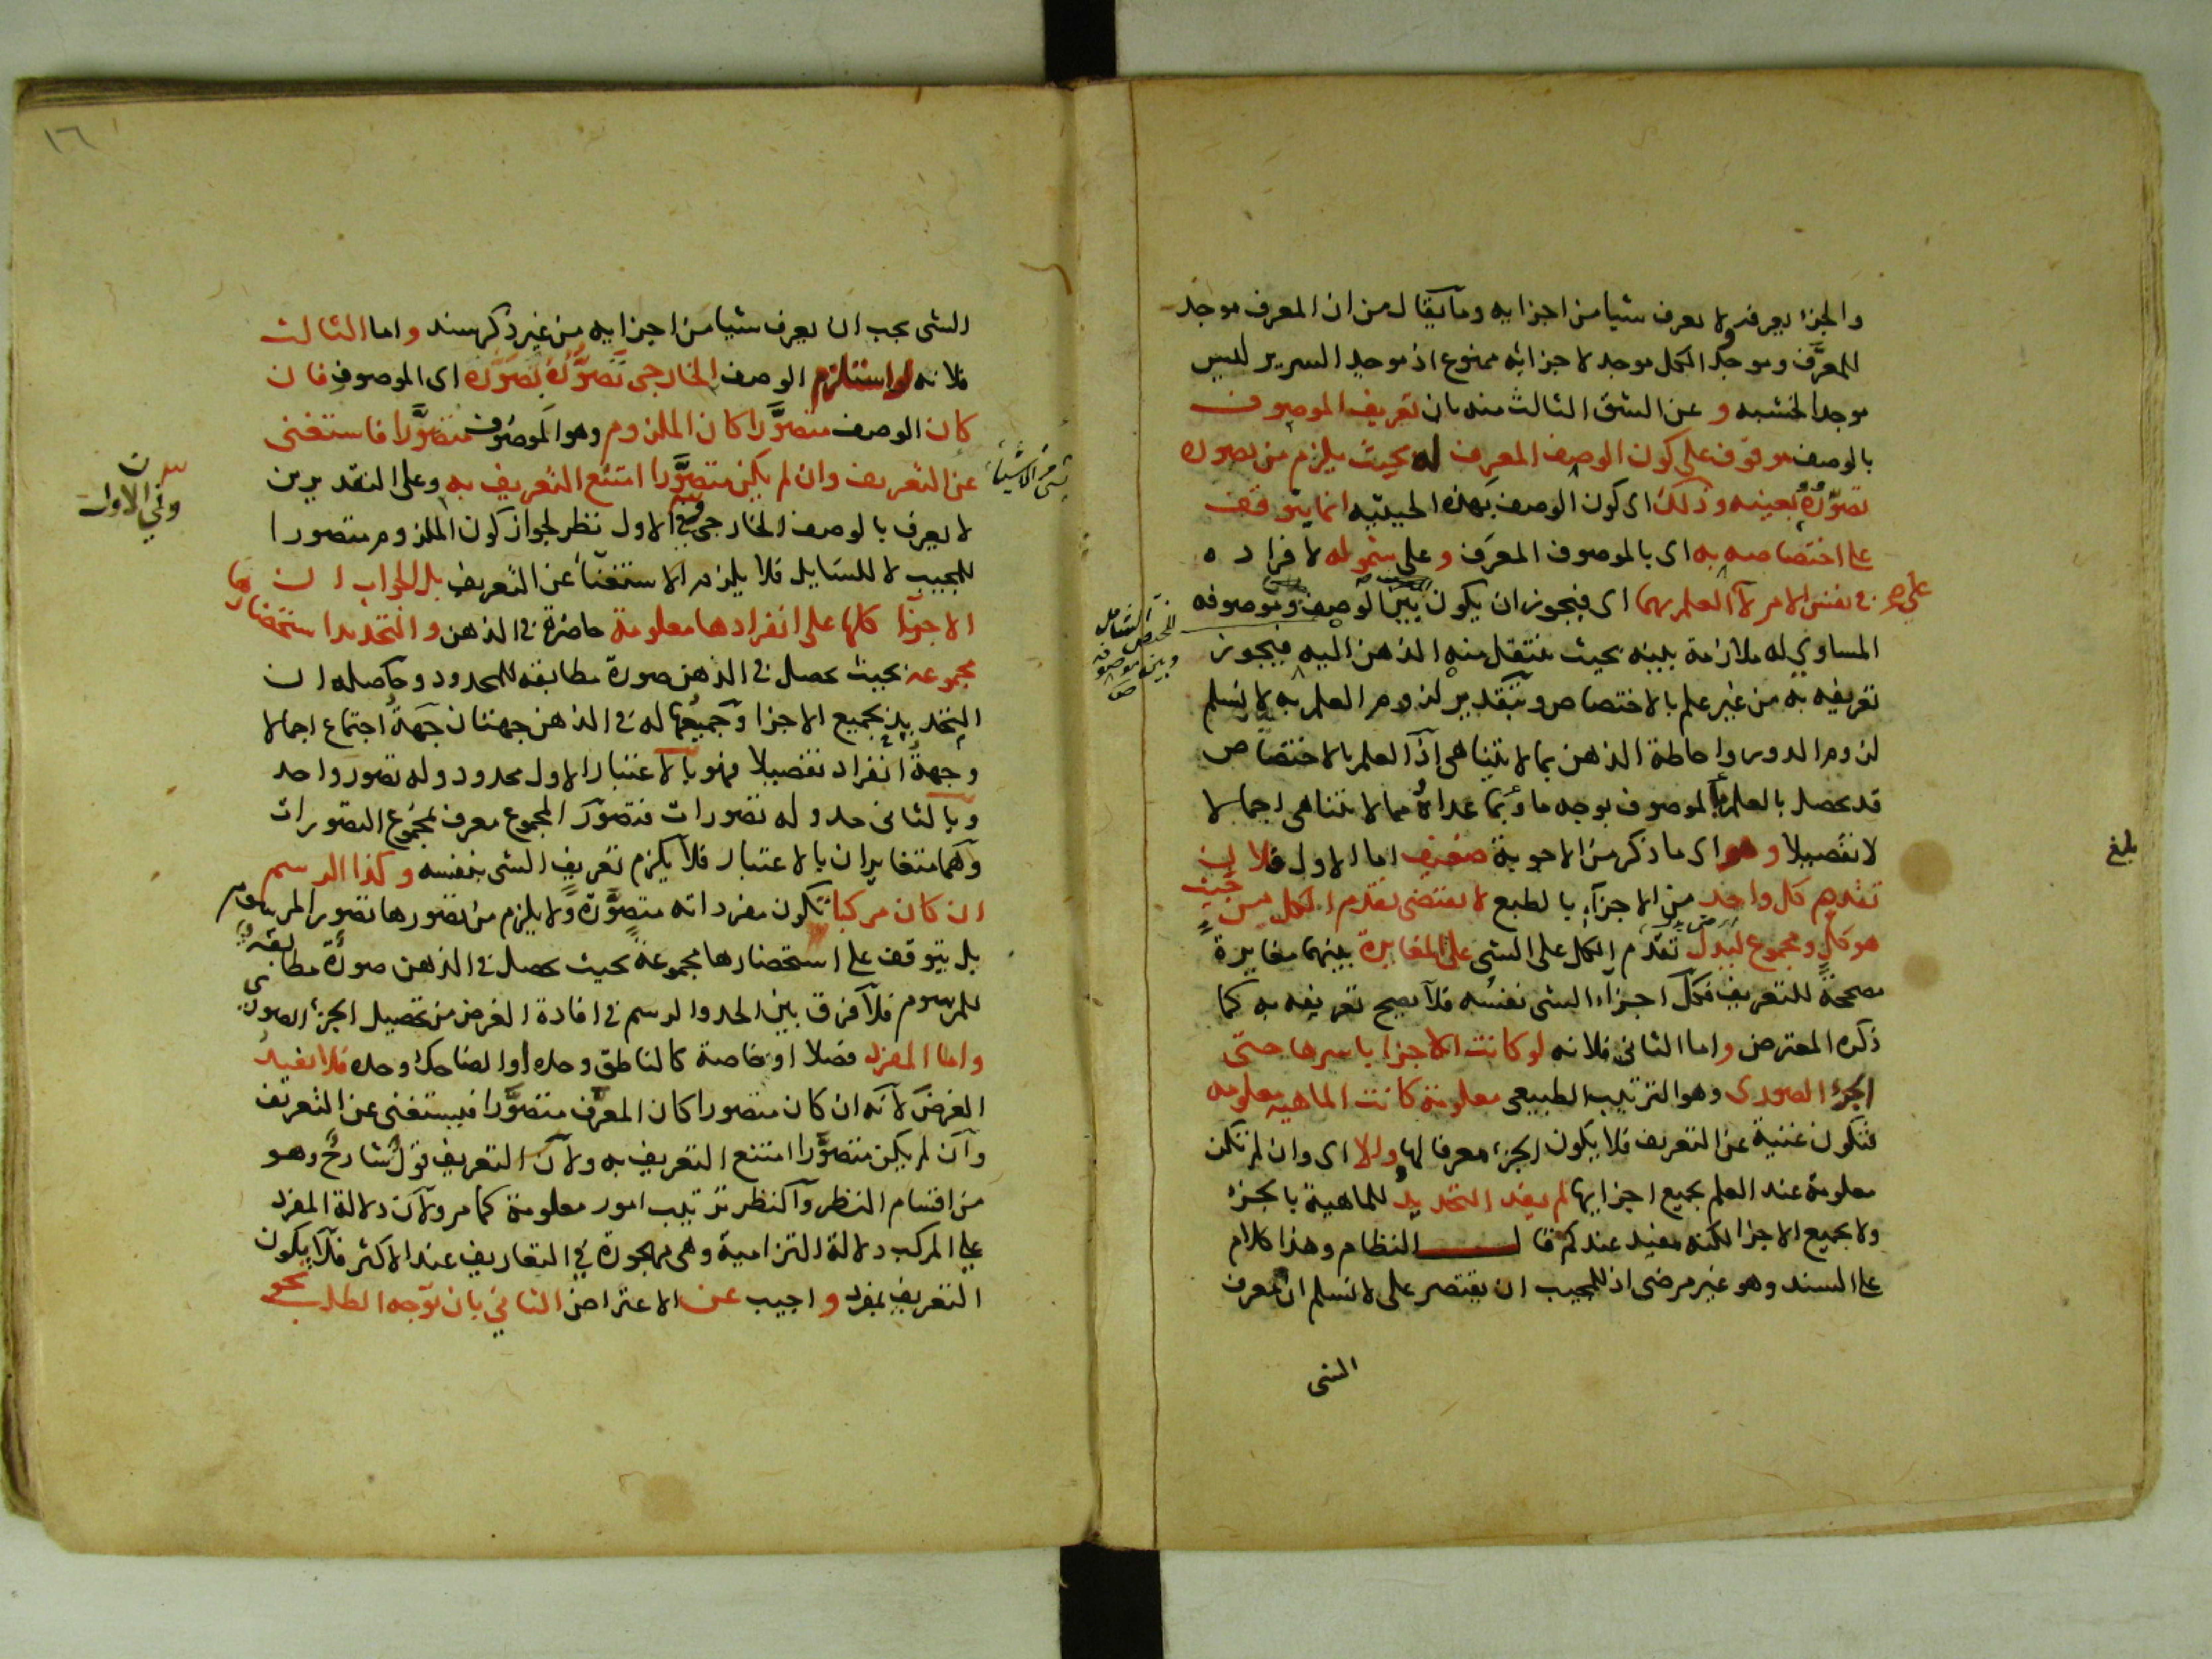 والجزا يعرفه ولا يعرف شيا من اجزايه وما يقال من ان المعرف موجد
للمعرَّف وموجد الكل موجد لاجزائه ممنوع اذ موجد السرير لليس
موجد الخشبه و عن الشق الثالث منه بان تعريف الموصوف
بالوصف موقوف على كون الوصف المعرف له بحيث يلزم من تصوره
تصوّرُهُ بعينه وذلك اى كون الوصف بهذه الحيثيه انما يتوقف
على اختصاصه به اى بالموصوف المعرَف وعلى شموله لافراد ه
فى نفس الامر لا العلم بهما اى فيجوز ان يكون بين الوصف وموصوفه
المساوي له ملازمة بينه بحيث ينتقل منه الذهن اليه فيجوز
تعريفه به من غير علم بالاختصاص وبتقدير لزوم العلم به لا نسلم
لزوم الدور واحاطة الذهن بما لا يتناهى اذ العلم بالاختصاص
قد يحصل بالعلم بالموصوف بوجه ما وبما عداهُ مما لا يتناهى اجمالا
لا تفصيلا وهو اى ما ذكر من الاجوبة ضعيف اما الاول فلان
تقدم كل واحد من الاجزآء بالطبع لا يقتضى تقدم الكل من حيث
هو كل ومجموع ليدل تقدم الكل على الشى على المغايرة بينهما مغايرة
مصححة للتعريف فكل اجزاء الشى نفسُه فلا يصح تعريفه به كما
ذكره المعترض واما الثانى فلانه لو كانت الاجزا باسرها حتى
الجزء الصورى وهو الترتيب الطبيعى معلومة كانت الماهيه معلومه
فتكون غنية عن التعريف فلا يكون الجزء معرفا لها والا اى وان لم تكن
معلومة عند العلم بجميع اجزايها لم يفد التحديدُ للماهية بالجزء
ولا بجميع الاجزا لكنه مفيد عندكم قال النظام وهذا كلام
على السند وهو غير مرضى اذ للمجيب ان يقتصر على لا نسلم ان معرف
الشى
بلغ
وبين موصوفه
١٦
الشى يجب ان يعرف شيا من اجزايه من غير ذكر سند واما الثالث
فلانه لو استلزم الوصف الخارجى تَصَوُّرُهُ تصوُّرَهُ اى الموصوف فان
كان الوصف متصوَّرا كان الملزوم وهو الموصوف متصوَّرا فاستغنى
عن التعريف وان لم يكن متصوَّرا امتنع التعريف به وعلى التقديرين
لا يعرف بالوصف الخارجى وفى الاول نظر لجواز كون الملزوم متصورا
للمجيب لا للسايل فلا يلزم الاستغناء عن التعريف بل الجواب ان
الاجزآ كلها على انفرادها معلومة حاضرة فى الذهن والتحديد استحضارها
مجموعه بحيث يحصل فى الذهن صورة مطابقه للمحدود وحاصله ان
التحديد بجميع الاجزا وجميعُها له فى الذهن جهتان جهةُ اجتماع اجمالا
وجهةُ انفراد تفصيلا فهو بالاعتبار الاول محدود وله تصور واحد
وبالثانى حد وله تصورات فتصوّر المجموع معرف لمجموع التصورات
وهما متغايران بالاعتبار فلا يلزم تعريف الشى بنفسه وكذا الرسم
ان كان مركبا تكون مفرداته متصوَّرة ولا يلزم من تصورها تصور المرسوم
بل يتوقف على استحضارها مجموعة بحيث يحصل فى الذهن صورة مطابقة
للمرسوم فلا فرق بين الحد والرسم فى افادة الغرض من تحصيل الجزء الصورى
واما المفرد فصلا او خاصة كالناطق وحده او الضاحك وحده فلا يفيد
الغرض لانه ان كان متصورا كان المعرَّف متصوَّرا فيستغنى عن التعريف
وان لم يكن متصوَّرا امتنع التعريف به ولان التعريف قولٌ شارحٌ وهو
من اقسام النظر والنظر ترتيب امور معلومة كما مر ولان دلالة المفرد
على المركب دلالة التزامية وهى مهجورة فى التعاريف عند الاكثر فلا يكون
التعريف بمفرد واجيب عن الاعتراض الثانى بان توجه الطلب نحو
ن
وفي الاول